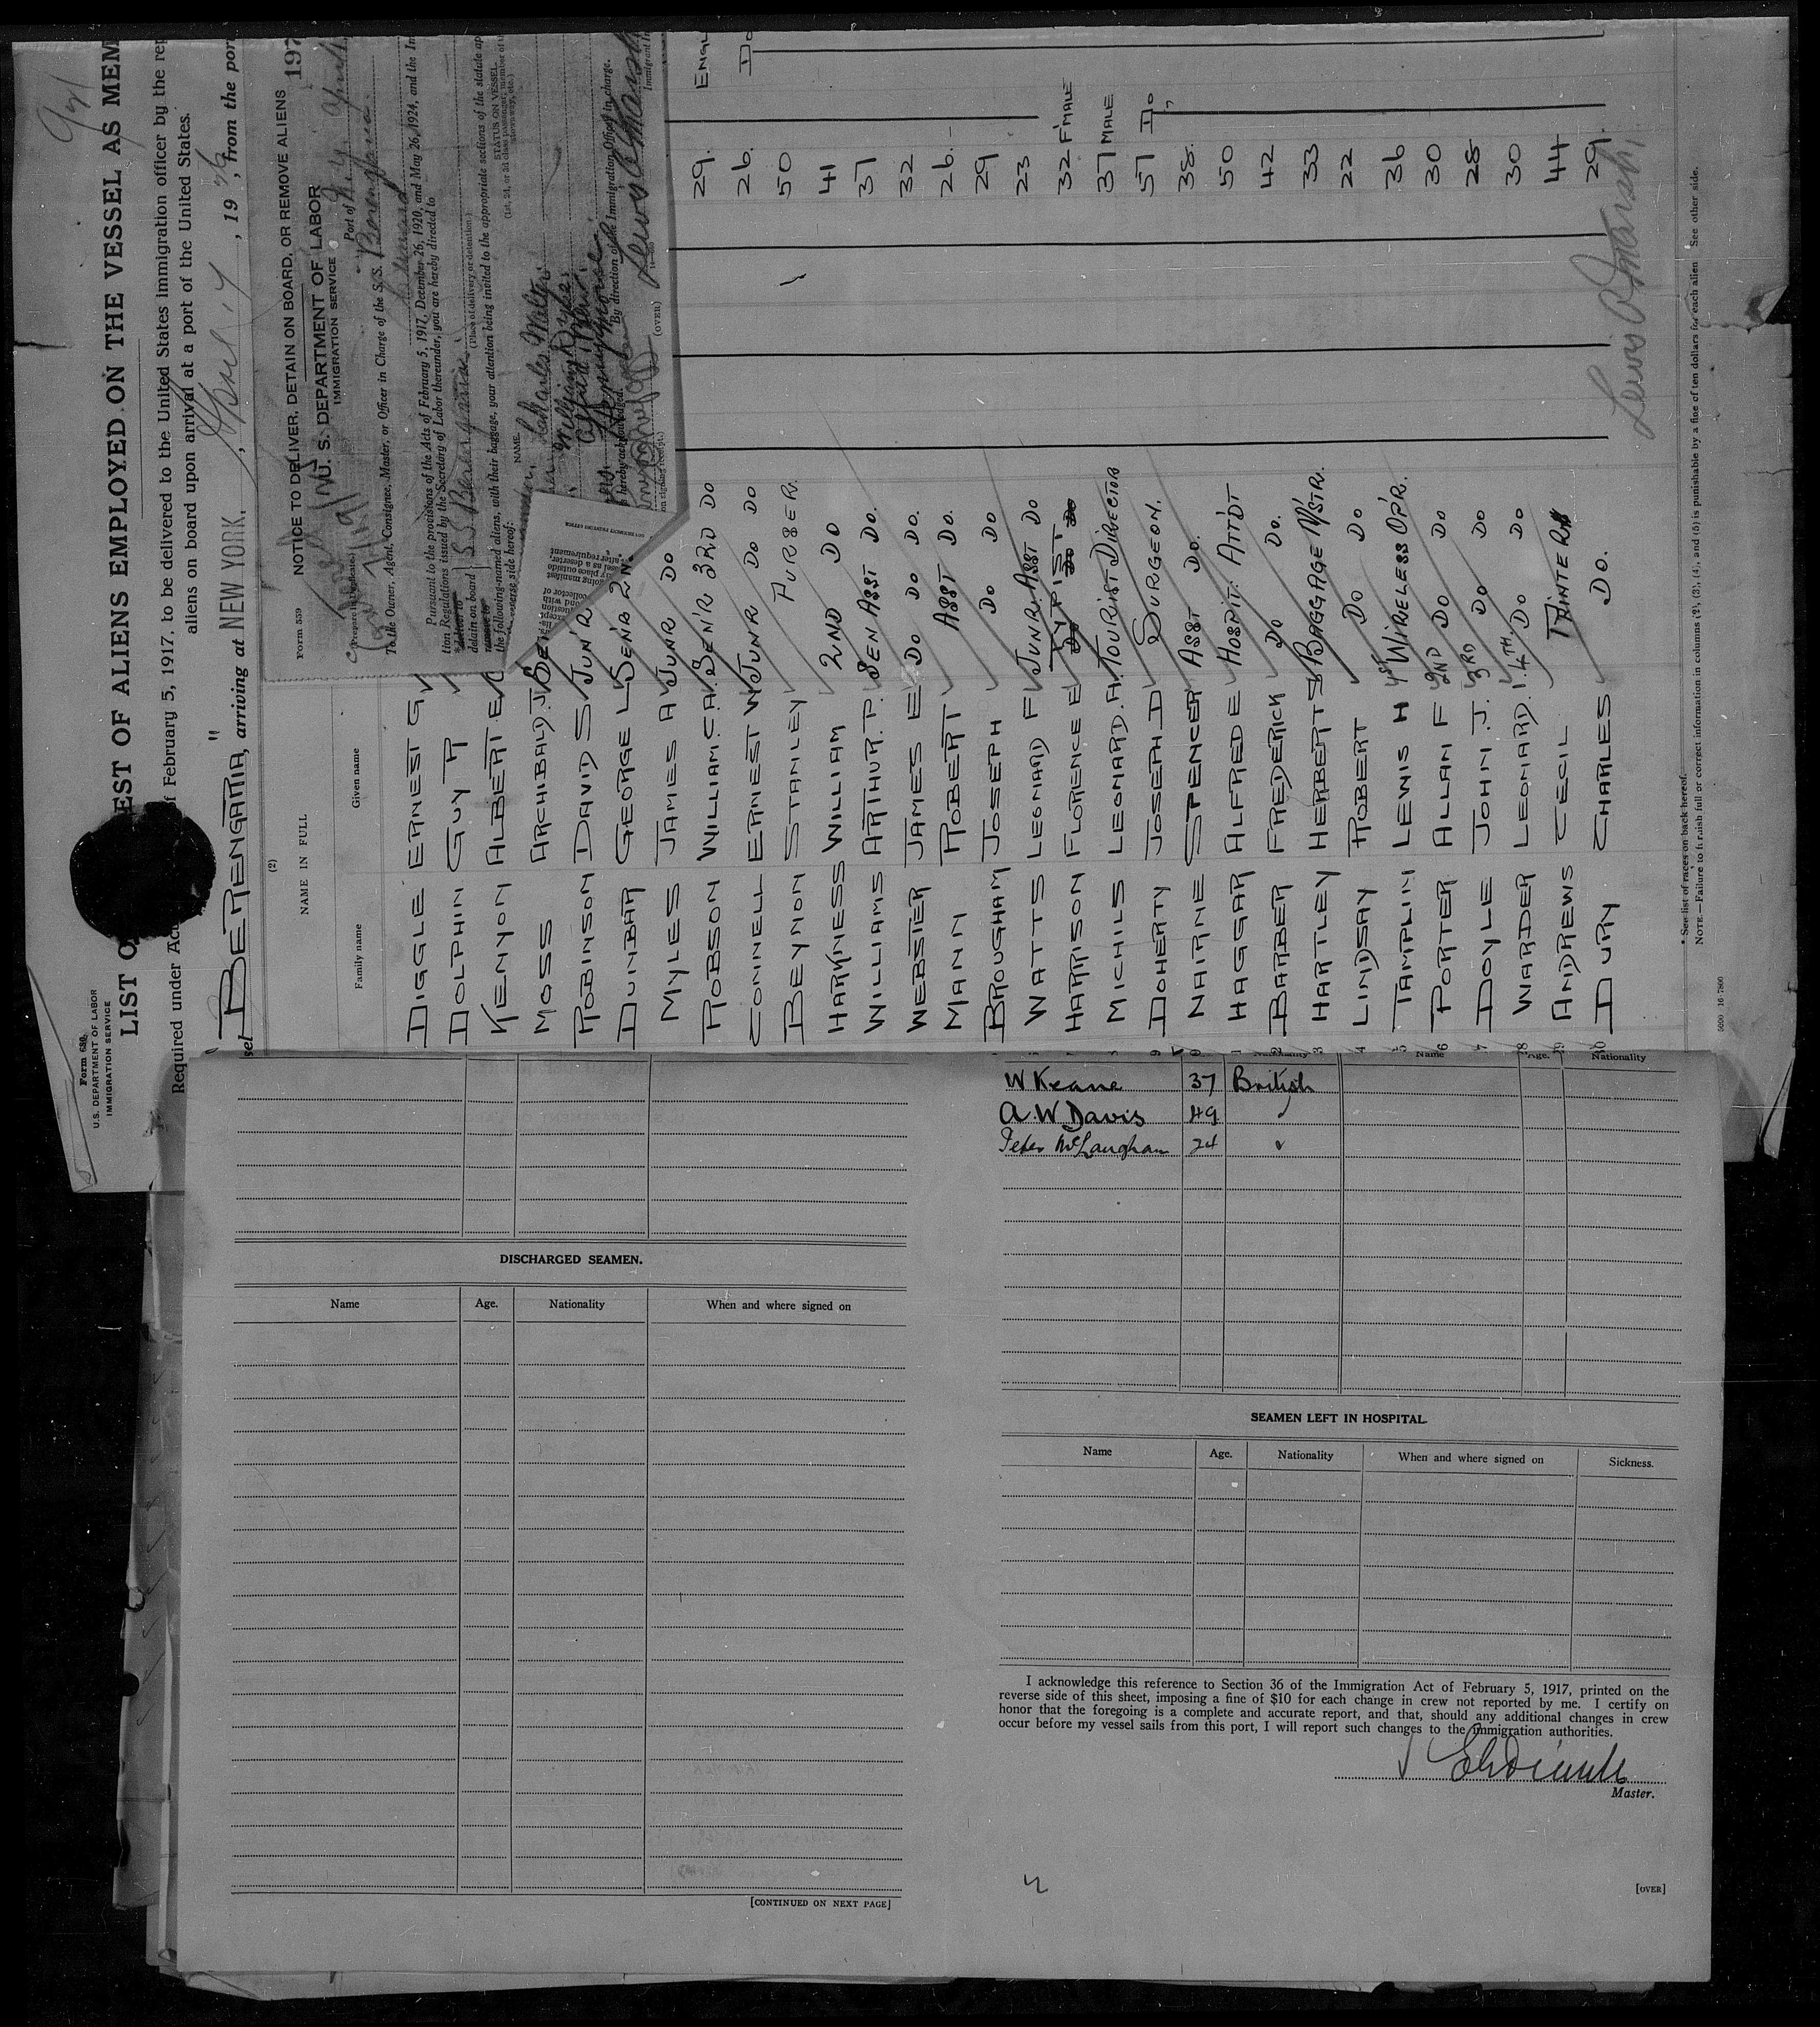 Form 680
U.S. DEPARTMENT OF LABOR
IMMIGRATION SERVICE
LIST OF ALIENS EMPLOYED ON THE VESSEL AS MEM
Required under Act of February 5, 1917, to be delivered to the United States immigration officer by the rep
aliens on board upon arrival at a port of the United States.
sel "BERENGARIA", arriving at NEW YORK, April 17, 1936, from the port
(2)
NAME IN FULL
Family name Given name
DIGGLE ERNEST G
DOLPHIN GUY P
KENYON ALBERT E
MOSS ARCHIBALD. J.
ROBINSON DAVID S JUN'R
DUNBAR GEORGE L SEN'R 2N
MYLES JAMES A JUNR DO
ROBSON WILLIAM. C.A. SEN'R 3RD DO 29.
CONNELL ERNEST W JUNR DO DO 26.
BEYNON STANLEY PURSER. 50
HARKNESS WILLIAM 2ND DO 41
WILLIAMS ARTHUR. P. SEN ASST DO. 37
WEBSTER JAMES E DO DO DO. 32
MANN ROBERT ASST DO. 26
BROUGHAM JOSEPH DO DO 29
WATTS LEONARD F JUNR. ASST DO 23
HARRISON FLORENCE E TYPIST 32 F'MALE
MICHILS LEONARD. A. TOURIST DIRECTOR 37 MALE
DOHERTY JOSEPH. D SURGEON. 57 DO
NAIRNE SPENCER ASST DO. 38.
HAGGAR ALFRED E HOSPIT. ATT'DT 50
BARBER FREDERICK DO DO. 42
HARTLEY HERBERT S BAGGAGE M'STR. 33
LINDSAY ROBERT DO DO 22
TAMPLIN LEWIS H 1ST WIRELESS OP'R. 36
PORTER ALLAN F 2ND DO DO 30
DOYLE JOHN. J. 3RD DO DO 28
WARDER LEONARD. 4TH. DO DO 30
ANDREWS CECIL PRINTER 44
DURY CHARLES DO. 29.
ENGL
DO
Lewis
* See list of races on back hereof.
NOTE.—Failure to furnish full or correct information in columns (2), (3), (4), and (5) is punishable by a fine of ten dollars for each alien. See other side.
Form 559
NOTICE TO DELIVER, DETAIN ON BOARD, OR REMOVE ALIENS 197
U. S. DEPARTMENT OF LABOR
IMMIGRATION SERVICE
(Prepare in duplicate) Port of N.Y. April
To the Owner, Agent, Consignee, Master, or Officer in Charge of the S.S. Berengaria
Cunard
Pursuant to the provisions of the Acts of February 5, 1917, December 26, 1920, and May 26, 1924, and the Im
tion Regulations issued by the Secretary of Labor thereunder, you are hereby directed to
detain on board S.S. Berengaria
(Place of delivery or detention.)
the following-named aliens, with their baggage, your attention being invited to the appropriate sections of the statute ap
verse side hereof:
NAME.
STATUS ON VESSEL
(1st, 2d, or 3d class passenger, member of
stowaway, etc.)
Charles
William
By direction of the Immigration Officer in charge.
Lewis
Immigrant In
(OVER)
Name Age. Nationality
W Keane 37 British
A. W Davis 49 "
Peter McLaughan 24 "
DISCHARGED SEAMEN.
Name Age. Nationality When and where signed on
[CONTINUED ON NEXT PAGE]
SEAMEN LEFT IN HOSPITAL.
Name Age. Nationality When and where signed on Sickness.
I acknowledge this reference to Section 36 of the Immigration Act of February 5, 1917, printed on the
reverse side of this sheet, imposing a fine of $10 for each change in crew not reported by me. I certify on
honor that the foregoing is a complete and accurate report, and that, should any additional changes in crew
occur before my vessel sails from this port, I will report such changes to the immigration authorities.
Master.
[OVER]